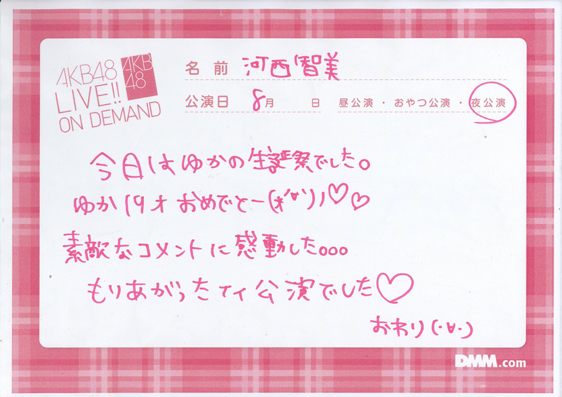 AKB48
LIVE!!
ON DEMAND
AKB
48
名前 河西智美
公演日 8月 日 昼公演・おやつ公演・夜公演
今日はゆかの生誕祭でした。
ゆか19才おめでとー(*´∀`)ノ♡♡
素敵なコメントに感動した。。。
もりあがったイイ公演でした♡
おわり(・∀・)
DMM.com